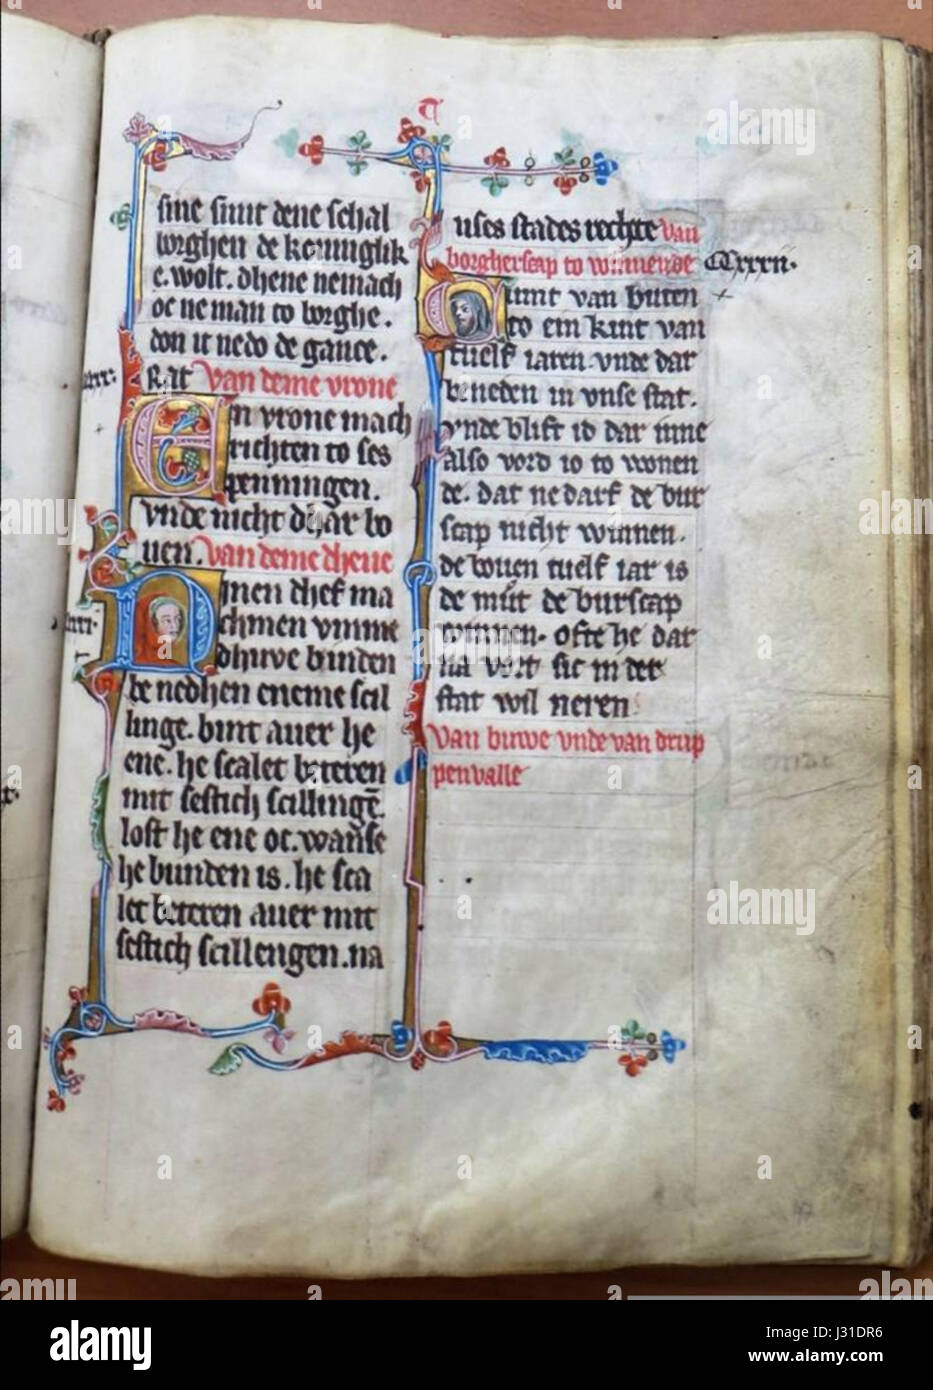 sine sunt dene schal
borghen de koninglik
e. wolt. dhene nemach
oc neman to borghe.
don it nedo de gance.
Rat van deme vrone
En vrone mach
richten to ses
penningen.
vnde nicht dhar bo
uen. van deme dheue
Nmen dhef ma
chmen vmme
dhuve binden
be nedhen eneme scil
linge. bint auer he
ene. he scalet beteren
mit sestich scillingē.
lost he ene oc. wanse
he bunden is. he sca
let beteren auer mit
sestich scillengen. na
uses stades rechte van
borgherscap to winnende
CCxxxii.
Cumt van buten
to ein kint van
tuelf iaren vnde dar
beneden in vnse stat.
vnde blift id dar inne
also vord io to wonen
de. dat ne darf de bur
scap nicht winnen.
de bouen tuelf iar is
de mut de burscap
winnen. ofte he dar
na vort sic in der
stat wil neren
van buwe vnde van drup
penvalle
alamy
Image ID: J31DR6
www.alamy.com